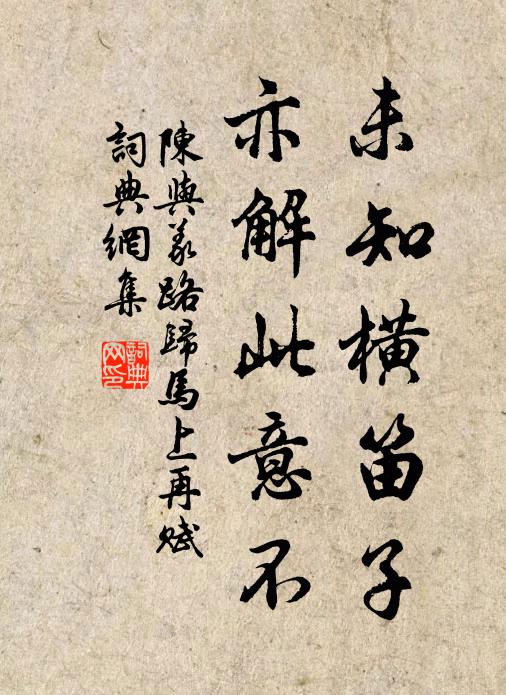 未知横笛子
亦解此意不
陳與義路歸馬上再賦
詞典網集
詞典
网印